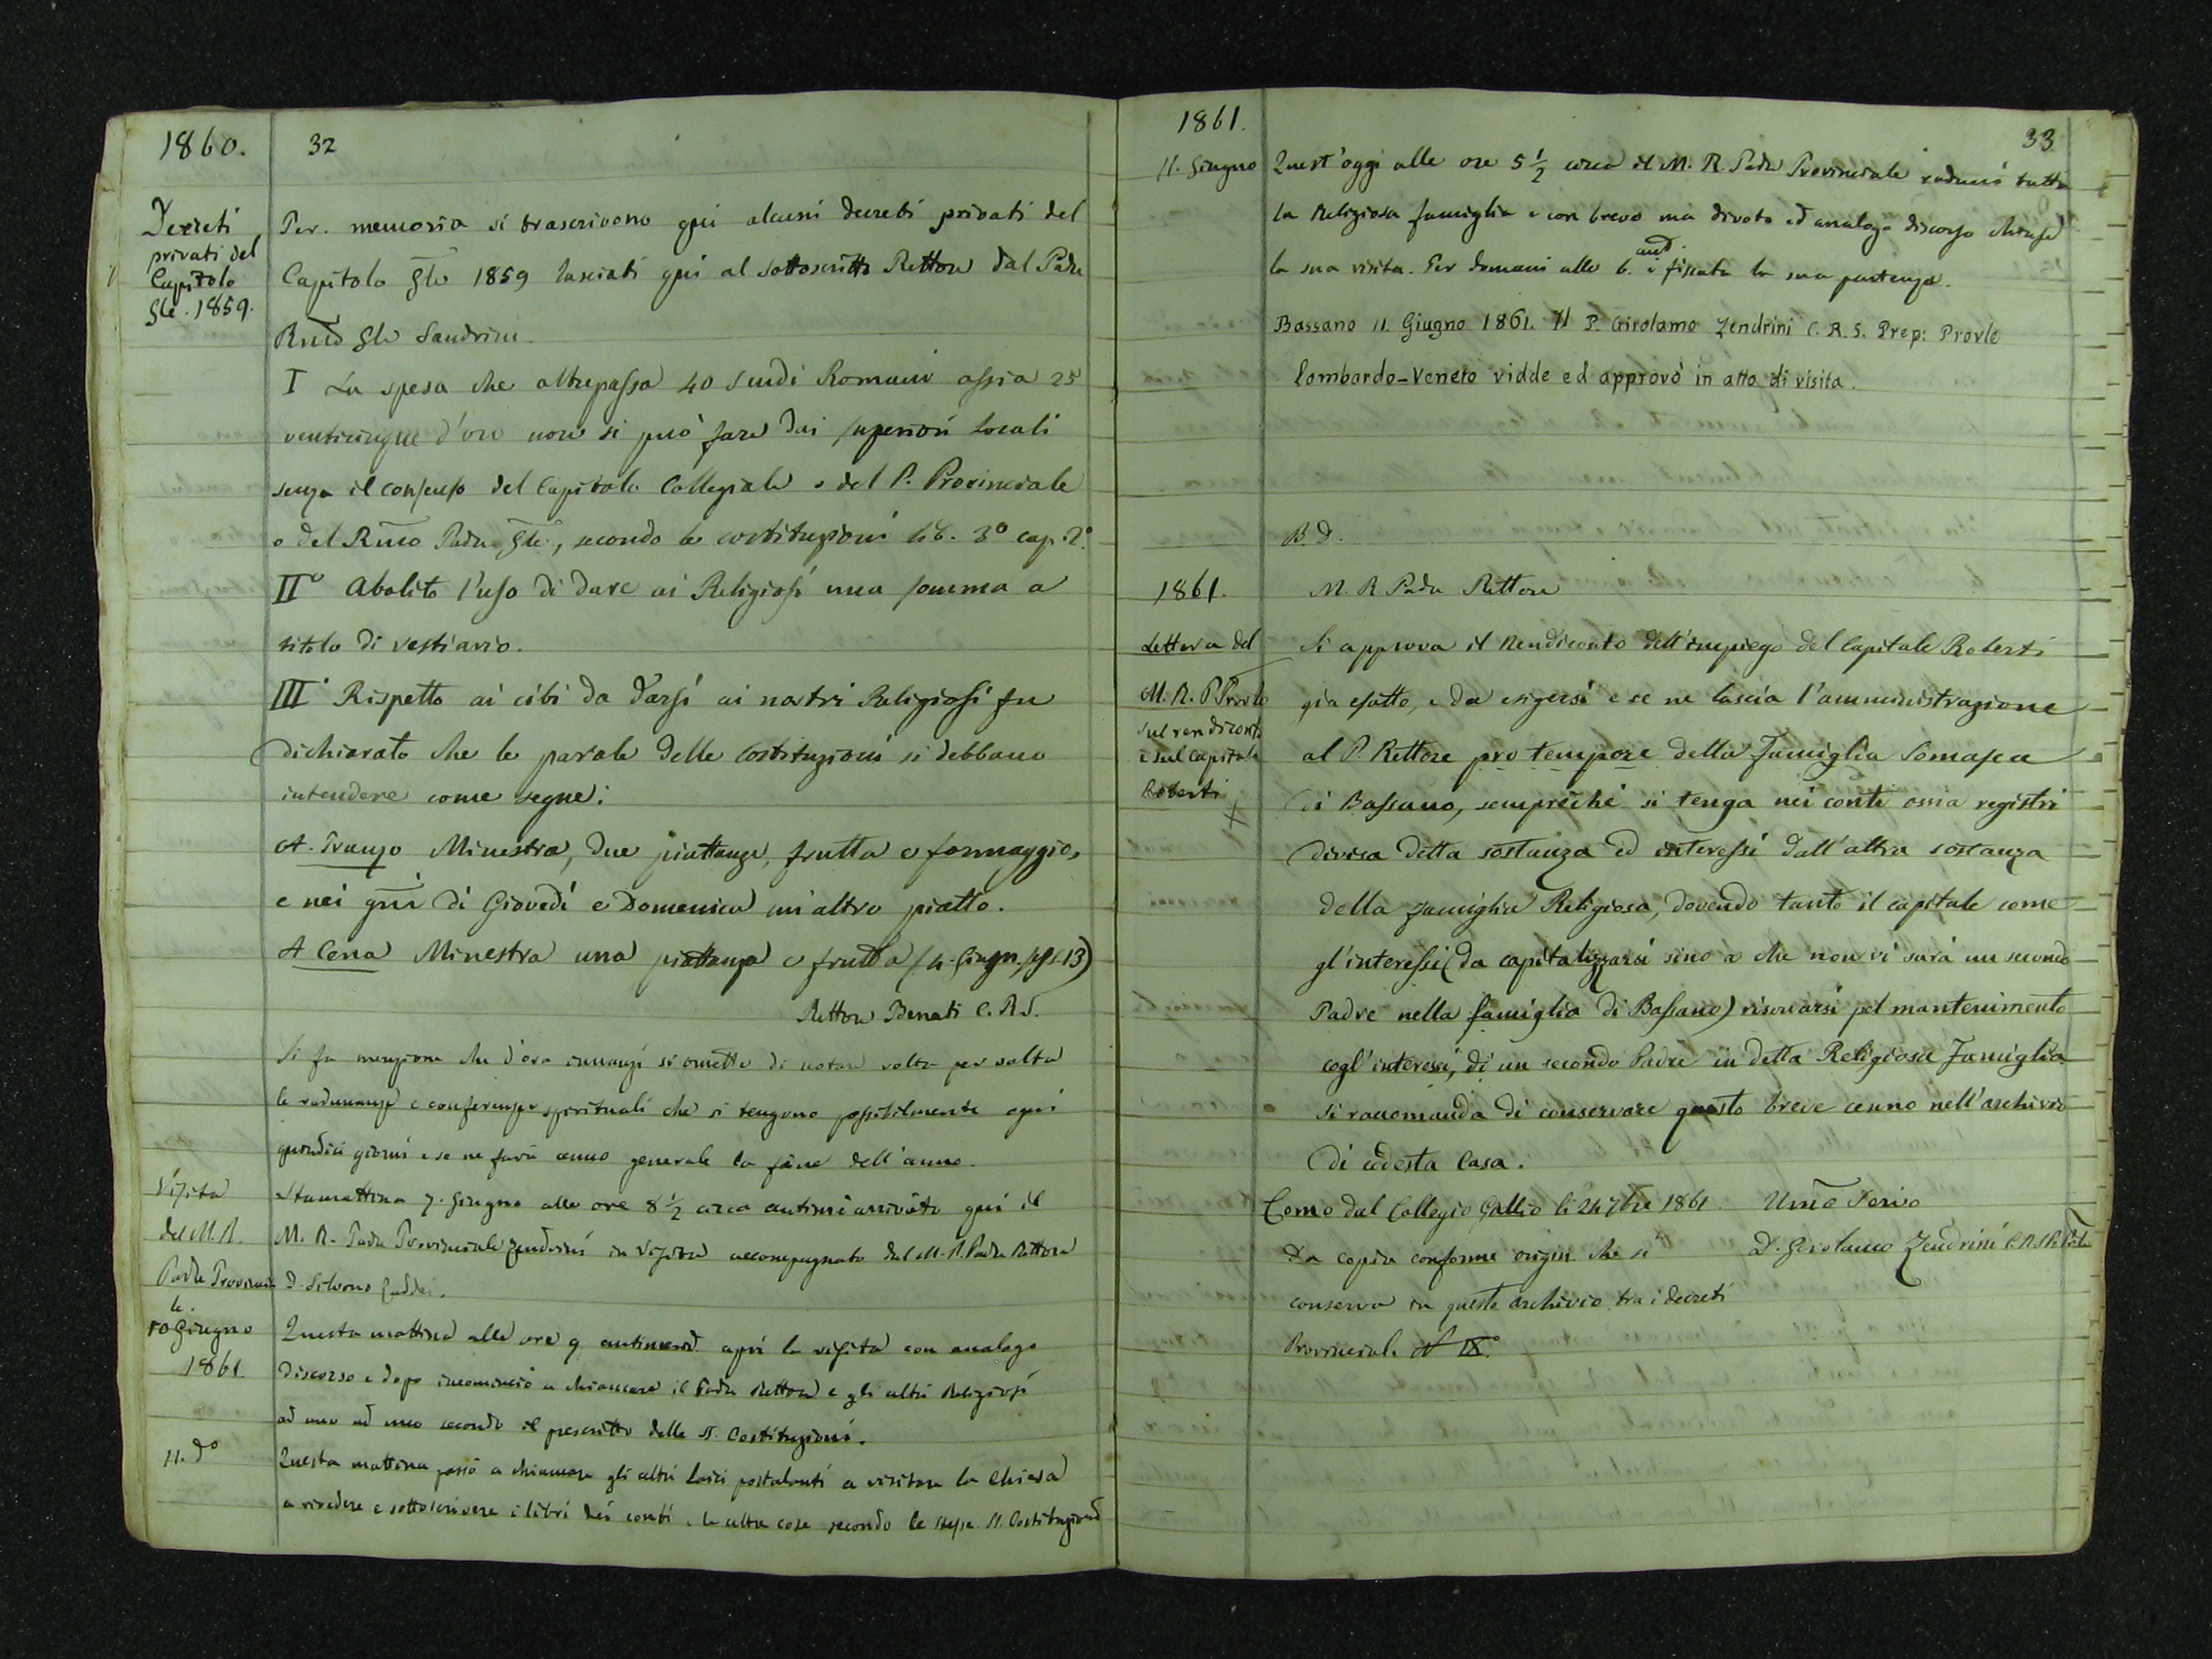 1860.
32
Decreti
privati del
Capitolo
Gle. 1859.
Per. memoria si trascrivono qui alcuni decreti privati del
Capitolo Gle 1859 lasciati qui al sottoscritto Rettore dal Padre
Rmo Gle Sandrini
I La spesa che oltrepassa 40 scudi Romani ossia 25
venticinque d'oro non si può fare dai superiori locali
senza il consenso del Capitolo Collegiale o del P. Provinciale
o del Rmo Padre Gle., secondo le costituzioni lib. 3º cap. 2º
IIº Abolito l'uso di dare ai Religiosi una somma a
titolo di vestiario.
III Rispetto ai cibi da darsi ai nostri Religiosi fu
dichiarato che le parole delle Costituzioni si debbano
intendere come segue:
A. Pranzo Minestra, due piattanze, frutta e formaggio,
e nei gni di Giovedì e Domenica un altro piatto.
A Cena Minestra una piattanza e frutta (4. Giugn. 13)
Rettore Benati C.R.S.
Si fa menzione che d'ora innanzi si omette di notare volta per volta
le radunanze e conferenze spirituali che si tengono possibilmente ogni
quindici giorni e se ne farà cenno generale la fine dell'anno.
Visita
del M.R.
Padre Provincia
le.
Stamattina 7. Giugno alle ore 8 ½ circa antimi arrivato qui il
M. R. Padre Provinciale Zendrini in Visita accompagnato dal M. R. Padre Rettore
D. Silvano
10 Giugno
1861
Questa mattina alle ore 9 antimerid. aprì la visita con analogo
discorso e dopo incominciò a chiamare il Padre Rettore e gli altri Religiosi
ad uno ad uno secondo il prescritto delle SS. Costituzioni.
11. dº
Questa mattina passò a chiamare gli altri laici postulanti a visitare la Chiesa
a rivedere e sottoscrivere i libri dei conti e le altre cose secondo le stesse SS. Costituzioni
1861.
33
11. Giugno
Quest'oggi alle ore 5 ½ circa il M. R. Padre Provinciale radunò tutta
la Religiosa famiglia e con breve ma divoto ed analogo discorso chiuse
la sua visita. Per domani alle 6. ant. è fissata la sua partenza.
Bassano 11. Giugno 1861. Il P. Girolamo Zendrini C. R. S. Prep: Provle
Lombardo-Veneto vidde ed approvò in atto di visita.
B. D.
1861.
M. R Padre Rettore
Lettera del
M. R. P Provle
sul rendiconto
e sul Capitale
Roberti
Si approva il Rendiconto dell'impiego del Capitale Roberti
già esatto, e da esigersi e se ne lascia l'amministrazione
al P. Rettore pro tempore della Famiglia Somasca
di Bassano, sempreché si tenga nei conti ossia registri
divisa detta sostanza ed interessi dall'altra sostanza
della famiglia Religiosa, dovendo tanto il capitale come
gl'interessi (da capitalizzarsi sino a che non vi sarà un secondo
Padre nella famiglia di Bassano) riservarsi pel mantenimento
cogl'interessi, di un secondo Padre in detta Religiosa Famiglia.
Si raccomanda di conservare questo breve cenno nell'archivio
di codesta Casa.
Como dal Collegio Gallio li 24 7bre 1861 Umo Servo
Da copia conforme origin. che si D. Girolamo Zendrini C.R.S.
conserva in questo archivio tra i decreti
Provinciali Nº IX.